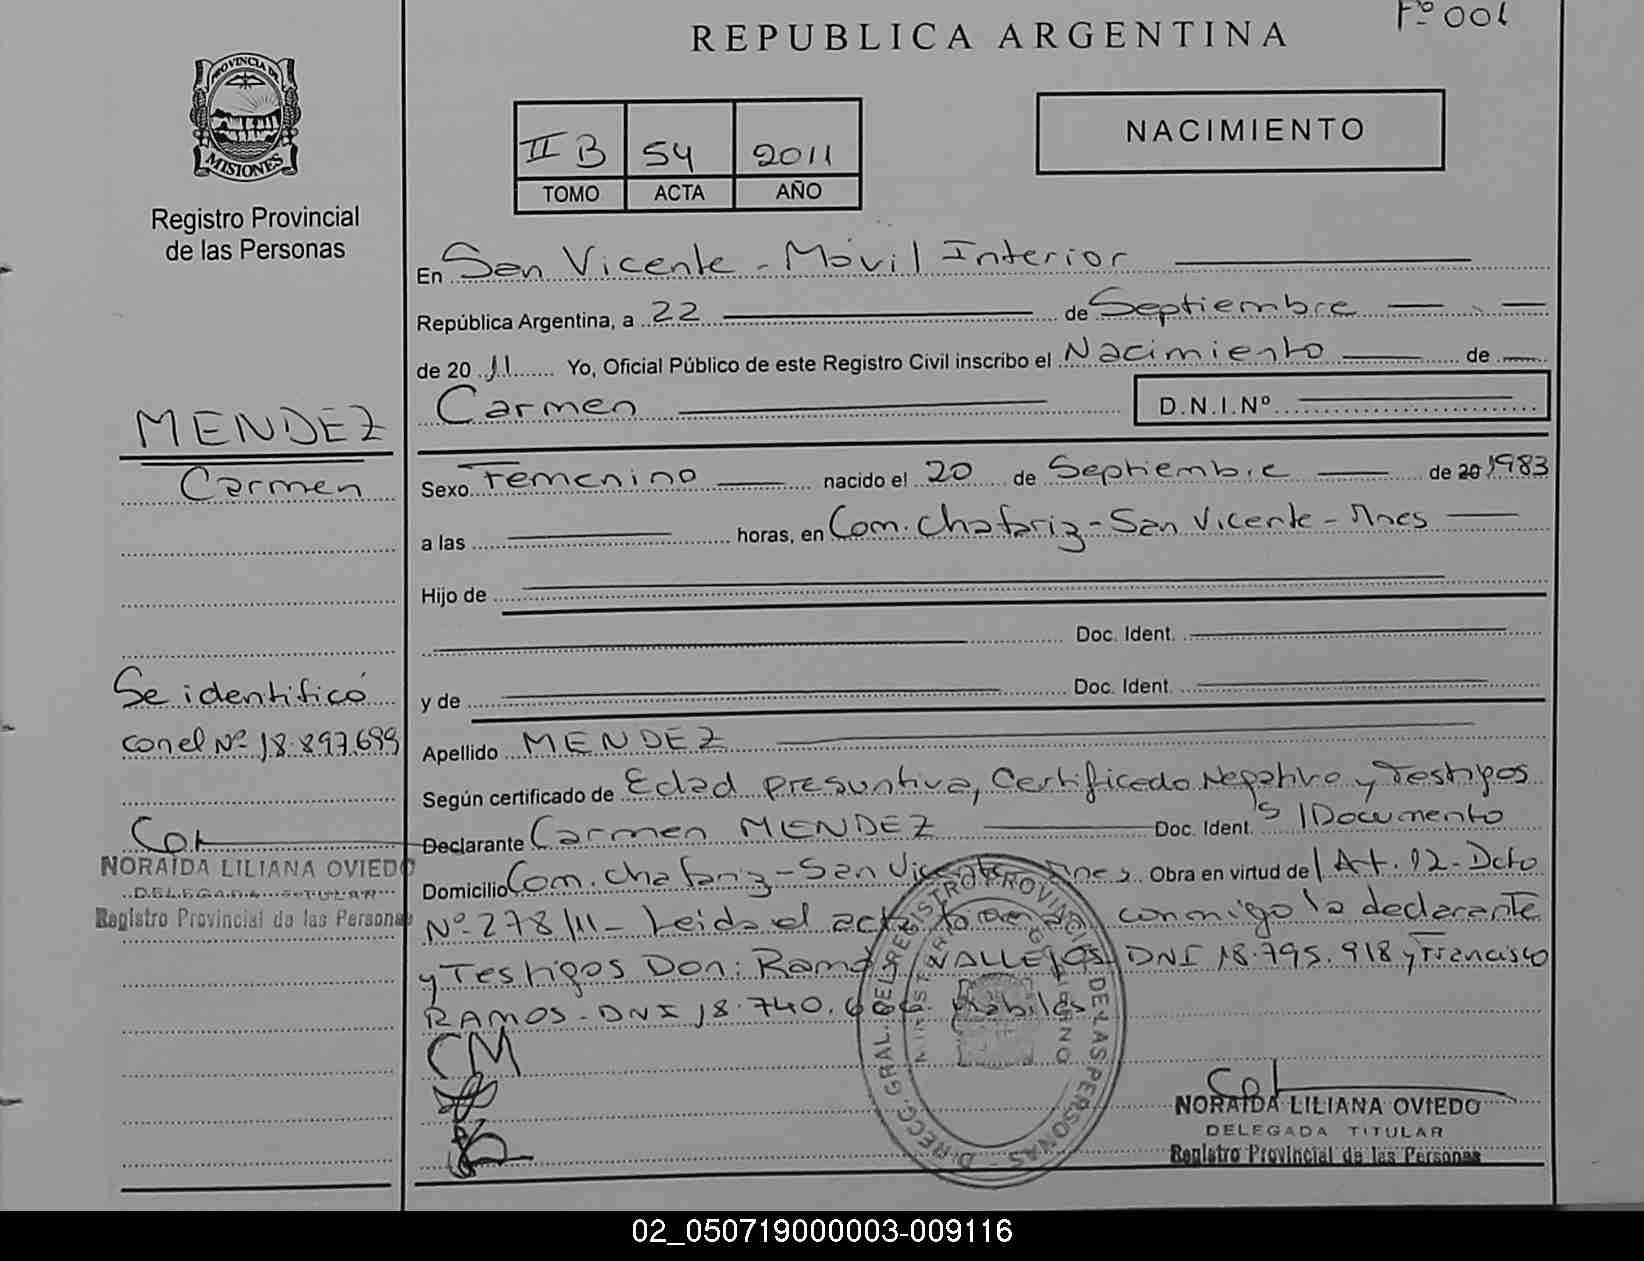 Fº 001
REPUBLICA ARGENTINA
PROVINCIA DE
MISIONES
Registro Provincial
de las Personas
II B 54 2011
TOMO ACTA AÑO
NACIMIENTO
En San Vicente - Móvil Interior
República Argentina, a 22 de Septiembre
de 20 11 Yo, Oficial Público de este Registro Civil inscribo el Nacimiento de
Carmen D.N.I.Nº
MENDEZ
Carmen
Sexo Femenino nacido el 20 de Septiembre de 20 1983
a las horas, en Com. Chafariz - San Vicente - Mnes
Hijo de
Doc. Ident.
y de Doc. Ident.
Se identificó
con el Nº 18.897.699
Apellido MENDEZ
Según certificado de Edad presuntiva, Certificado Negativo y Testigos
Declarante Carmen MENDEZ Doc. Ident. S/Documento
Domicilio Com. Chafariz - San Vicente Mnes. Obra en virtud de Art. 12 - Dcto
Nº 278/11 - Leida el acta firman conmigo la declarante
y Testigos Don: Ramón VALLEJOS DNI 18.795.918 y Francisco
RAMOS - DNI 18.740.666 Habiles
CM
NORAIDA LILIANA OVIEDO
DELEGADA TITULAR
Registro Provincial de las Personas
DIRECC. GRAL. DEL REGISTRO PROVINCIAL DE LAS PERSONAS
NORAIDA LILIANA OVIEDO
DELEGADA TITULAR
Registro Provincial de las Personas
02_050719000003-009116